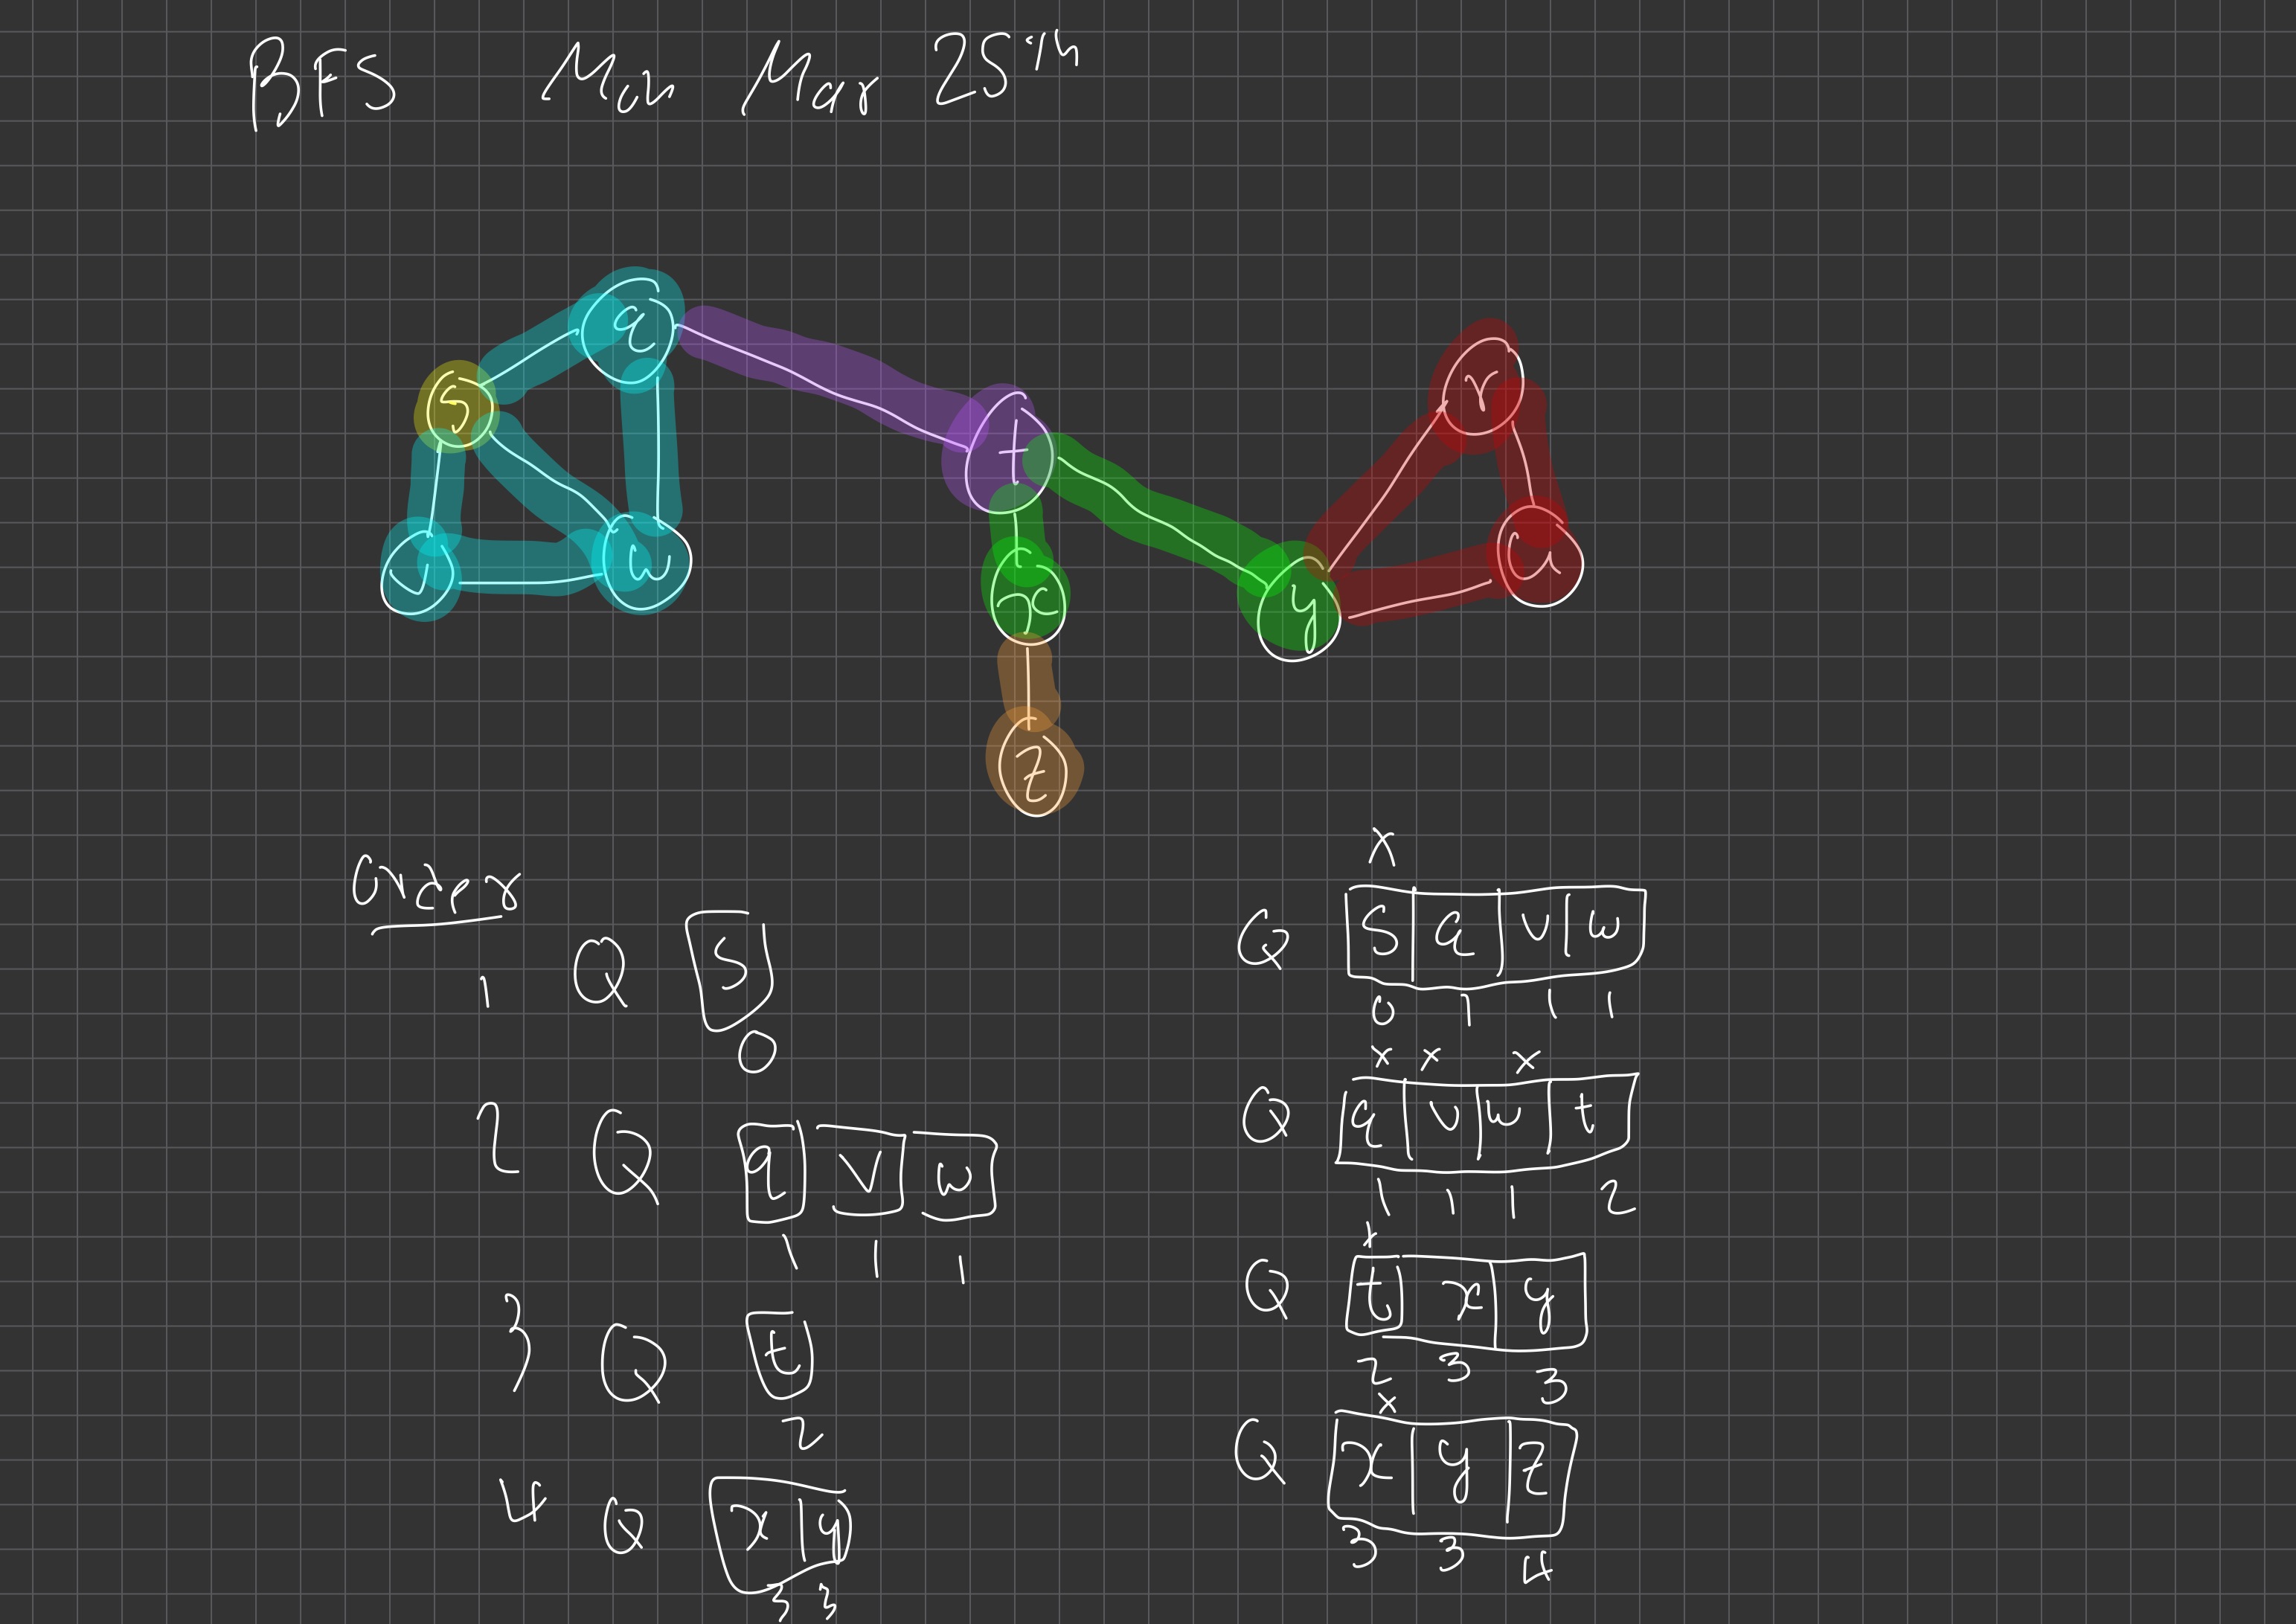 BFS Mon Mar 25th
q
r
s
t
v
w
u
x
y
z
Order
1 Q s
0
2 Q q v w
1 1 1
3 Q t
2
4 Q x y
3 3
x
Q s q v w
0 1 1 1
x x x
Q q v w t
1 1 1 2
x
Q t x y
2 3 3
x
Q x y z
3 3 4